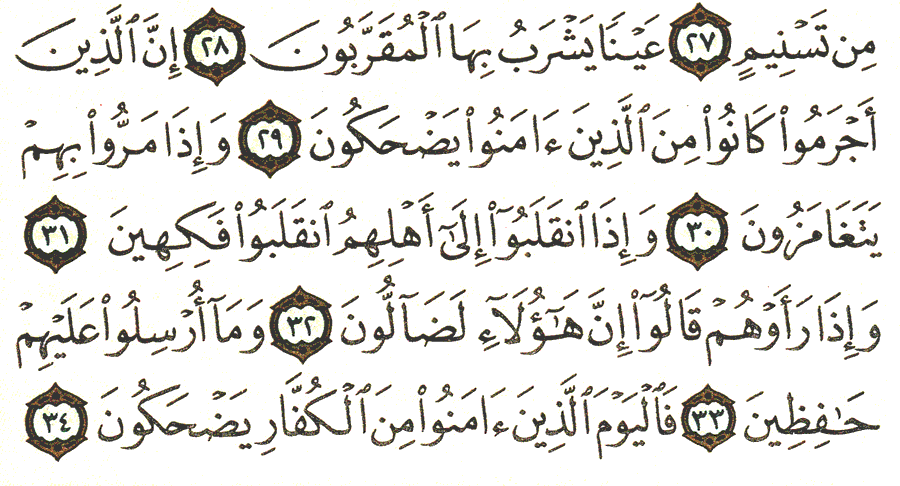 مِن تَسْنِيمٍ ٢٧ عَيْنًا يَشْرَبُ بِهَا ٱلْمُقَرَّبُونَ ٢٨ إِنَّ ٱلَّذِينَ
أَجْرَمُوا۟ كَانُوا۟ مِنَ ٱلَّذِينَ ءَامَنُوا۟ يَضْحَكُونَ ٢٩ وَإِذَا مَرُّوا۟ بِهِمْ
يَتَغَامَزُونَ ٣٠ وَإِذَا ٱنقَلَبُوٓا۟ إِلَىٰٓ أَهْلِهِمُ ٱنقَلَبُوا۟ فَكِهِينَ ٣١
وَإِذَا رَأَوْهُمْ قَالُوٓا۟ إِنَّ هَٰٓؤُلَآءِ لَضَآلُّونَ ٣٢ وَمَآ أُرْسِلُوا۟ عَلَيْهِمْ
حَٰفِظِينَ ٣٣ فَٱلْيَوْمَ ٱلَّذِينَ ءَامَنُوا۟ مِنَ ٱلْكُفَّارِ يَضْحَكُونَ ٣٤